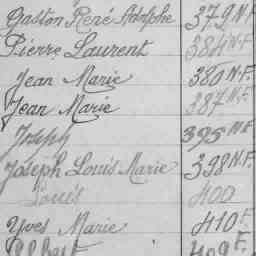 Gaston René Adolphe 379 N.F.
Pierre Laurent 384 N.F.
Jean Marie 380 N.F.
Jean Marie 387 N.F.
Joseph 395 N.F.
Joseph Louis Marie 398 N.F.
Louis 400
Yves Marie 410 F.
409 F.